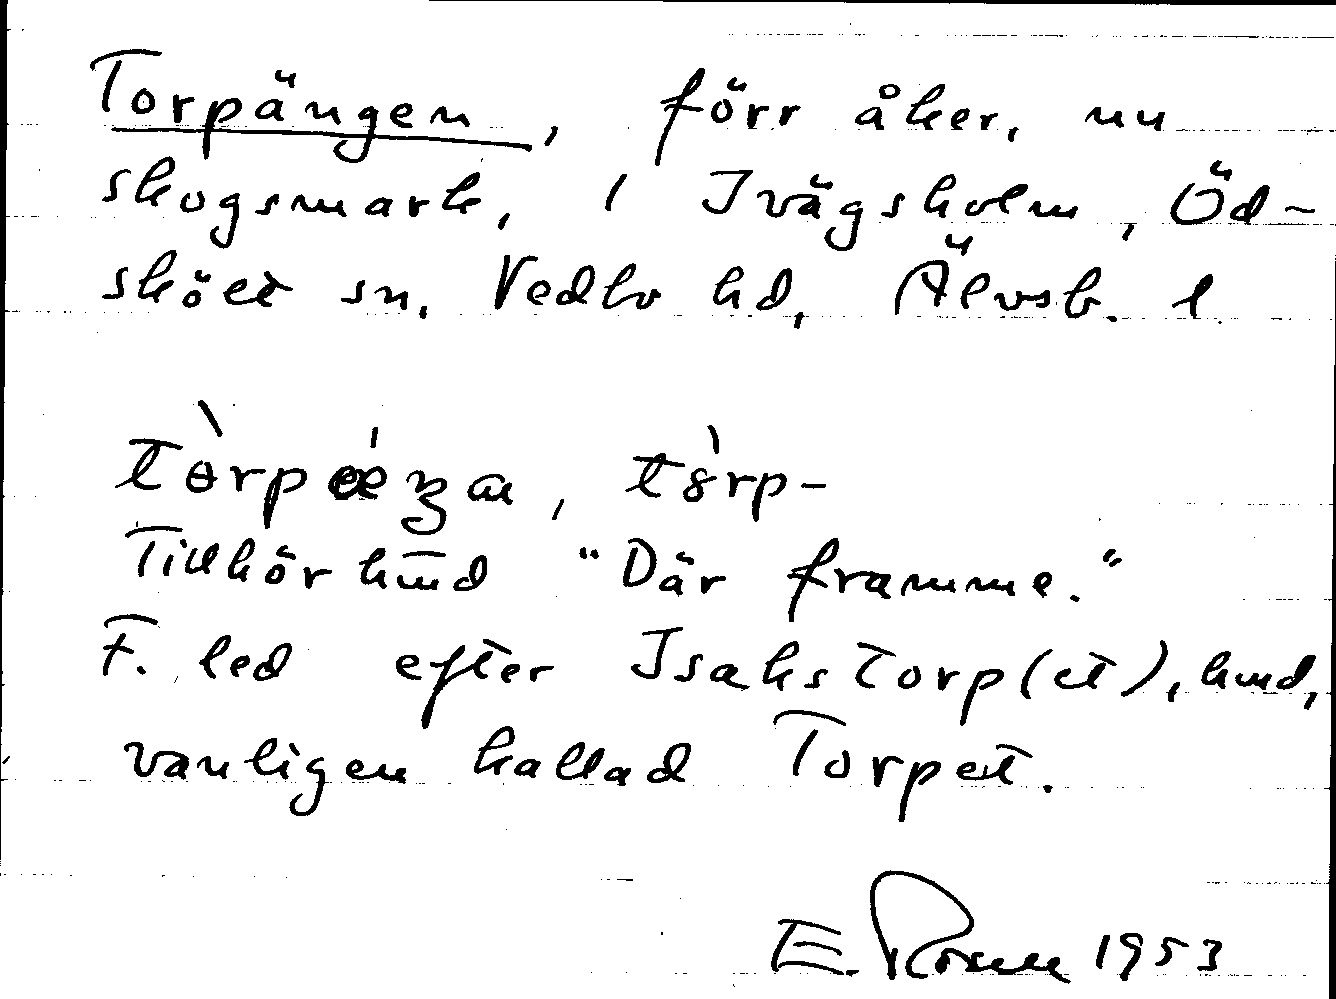 Torpängen, förr åker, nu
skogsmark, i Ivägsholm, Öd-
sköлt sn, Vedbo hd, Älvsb. l
tɵ̀rpǽŋa, tȣ̀rp-
Tillhör hmd "Där framme."
F. led efter Isakstorp(et), hmd,
vanligen kallad Torpet.
E. 1953